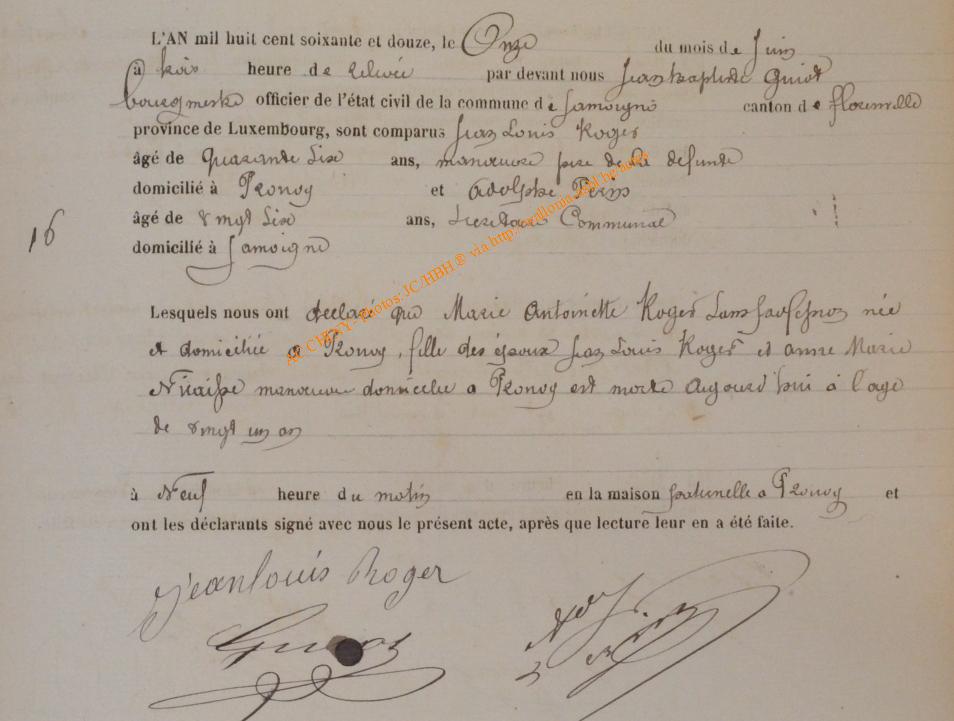 L'AN mil huit cent soixante et douze, le Onze du mois de Juin
à trois heure de relevée par devant nous Jean baptiste Guiot
bourgmestre officier de l'état civil de la commune de Jamoigne canton de florenville
province de Luxembourg, sont comparus Jean Louis Roger
âgé de Quarante Six ans, manœuvre père de la defunte
domicilié à Pronvoy et Adolphe Perin
âgé de vingt Six ans, Secretaire Communal
domicilié à Jamoigne
16
Lesquels nous ont declaré que Marie Antoinette Roger Sans profession née
et domiciliée a Pronvoy, fille des époux Jean Louis Roger et anne Marie
Nicaise manœuvre domicilié a Pronvoy est morte aujourd'hui à l'age
de vingt un an
à Neuf heure du matin en la maison paternelle a Pronvoy et
ont les déclarants signé avec nous le présent acte, après que lecture leur en a été faite.
jean louis Roger
Guiot
ACCHINY- Photos: JC/HBH ® via http://